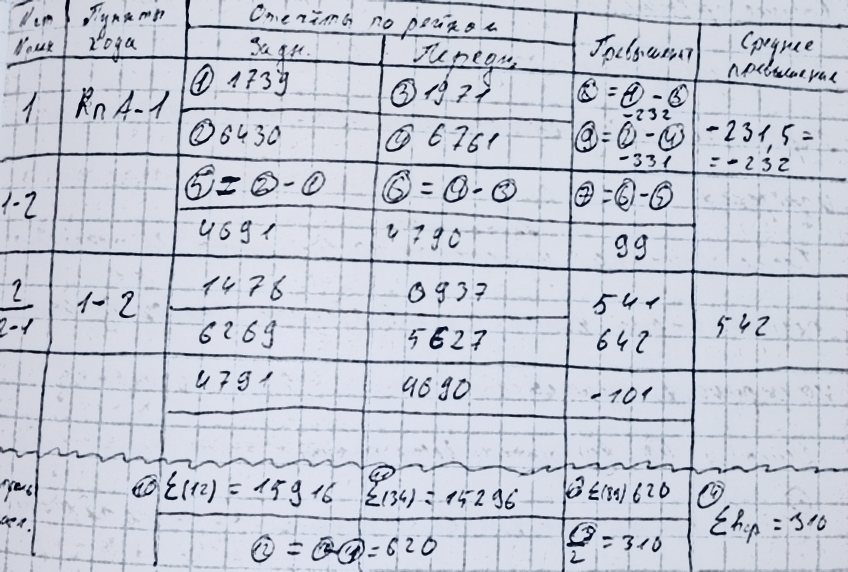 Пункты хода
Отсчёты по рейкам
Задн. Передн. Превышения Среднее превышение
1 Rп A-1 ① 1739 ③ 1971 ⑧ = ① - ③ -232
② 6430 ④ 6761 ⑨ = ② - ④ -331 -231,5 = = -232
1-2 ⑤ = ② - ① ⑥ = ④ - ③ ⑦ = ⑥ - ⑤
4691 4790 99
2 1-2 1478 0937 541
2-1 6269 5627 642 542
4791 4690 -101
⑩ Σ(12) = 15916 ⑪ Σ(34) = 15296 Σ(89) 620 ⑭ Σhср = 310
⑫ = ⑩-⑪ = 620 ⑬/2 = 310